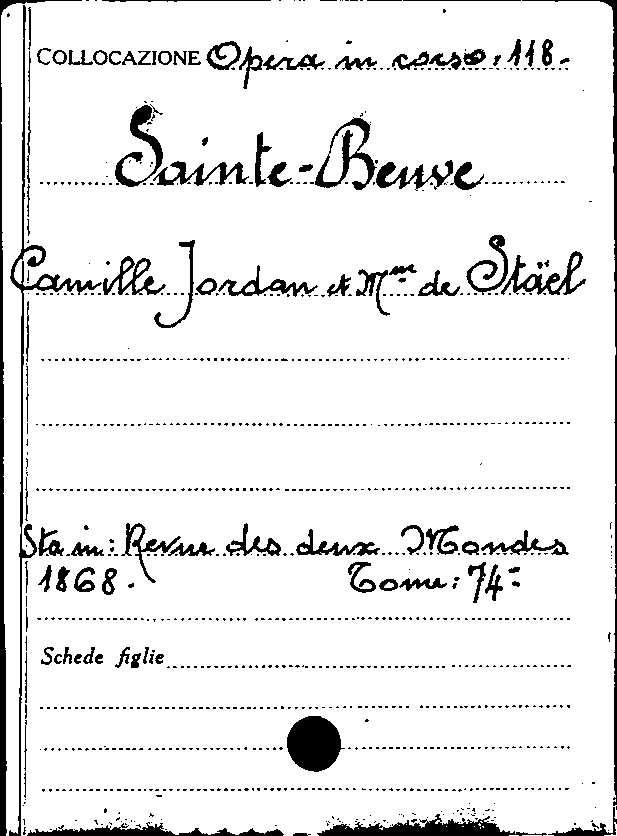 COLLOCAZIONE Opera in corso. 118.
Sainte-Beuve
Camille Jordan et Mme de Stäel
Sta in: Revue des deux Mondes
1868. Tome: 74-
Schede figlie